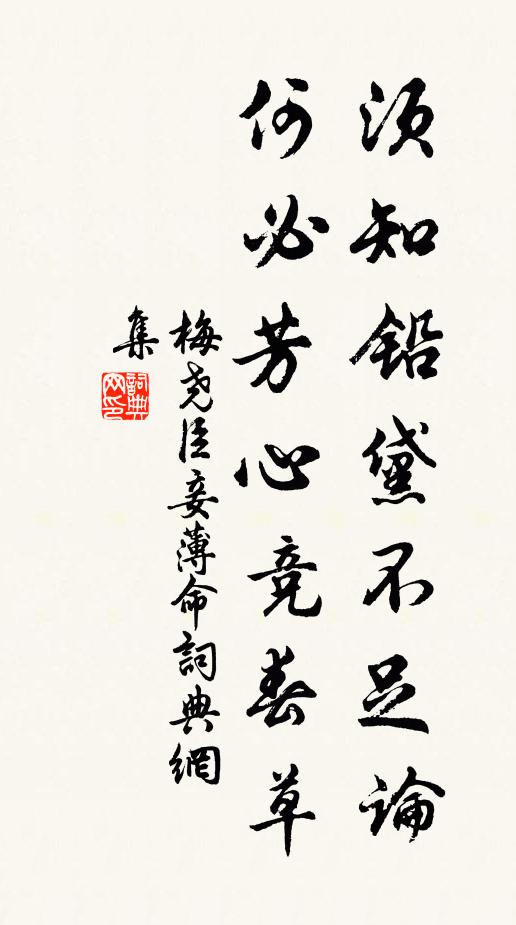 须知铅黛不足论
何必芳心竞春草
梅尧臣妾薄命詞典網
集
詞典网印